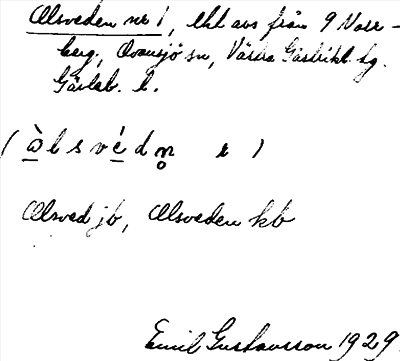 Alsveden nr 1, lht avs från 9 Norr-
berg, Ovansjö sn, Västra Gästrikl. hg.
Gävleb. l.
(àlsvédn̥ )
Alsved jb, Alsveden kb
Emil Gustavsson 1929.